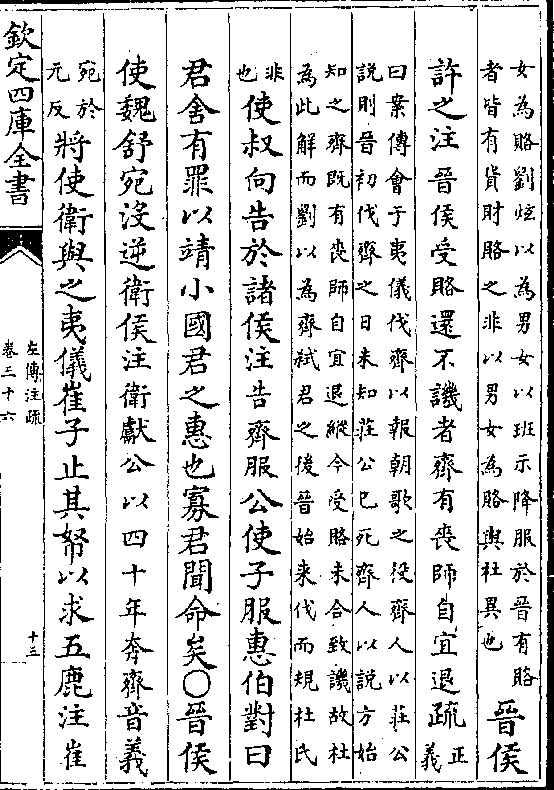 女為賂劉炫以為男女以班示降服於晉有賂
者皆有貨財賂之非以男女為賂與杜異也
晉侯
許之注晉侯受賂還不譏者齊有喪師自宜退疏
正義
曰案傳會于夷儀伐齊以報朝歌之役齊人以莊公
說則晉初伐齊之日未知莊公已死齊人以説方始
知之齊既有喪師自宜退縱令受賂未合致譏故杜
為此解而劉以為齊弑君之後晉始來伐而規杜氏
非也
使叔向告於諸侯注告齊服公使子服惠伯對曰
君舍有罪以靖小國君之惠也寡君聞命矣○晉侯
使魏舒宛沒逆衛侯注衛獻公以四十年奔齊音義
宛於元反
將使衛與之夷儀崔子止其帑以求五鹿注崔
欽定四庫全書
左傳注疏
卷三十六
十三